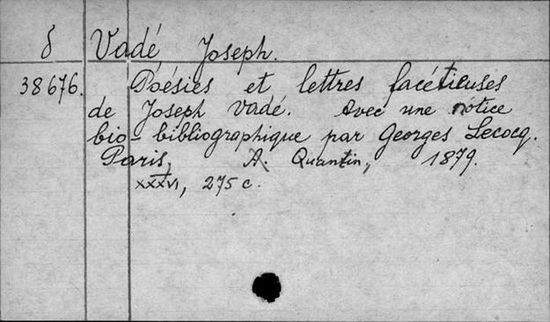 δ Vadé Joseph.
38676. Poésies et lettres facétieuses
de Joseph Vadé. Avec une notice
bio-bibliographique par Georges Lecocq.
Paris, A. Quantin, 1879.
XXXVI, 275 c.